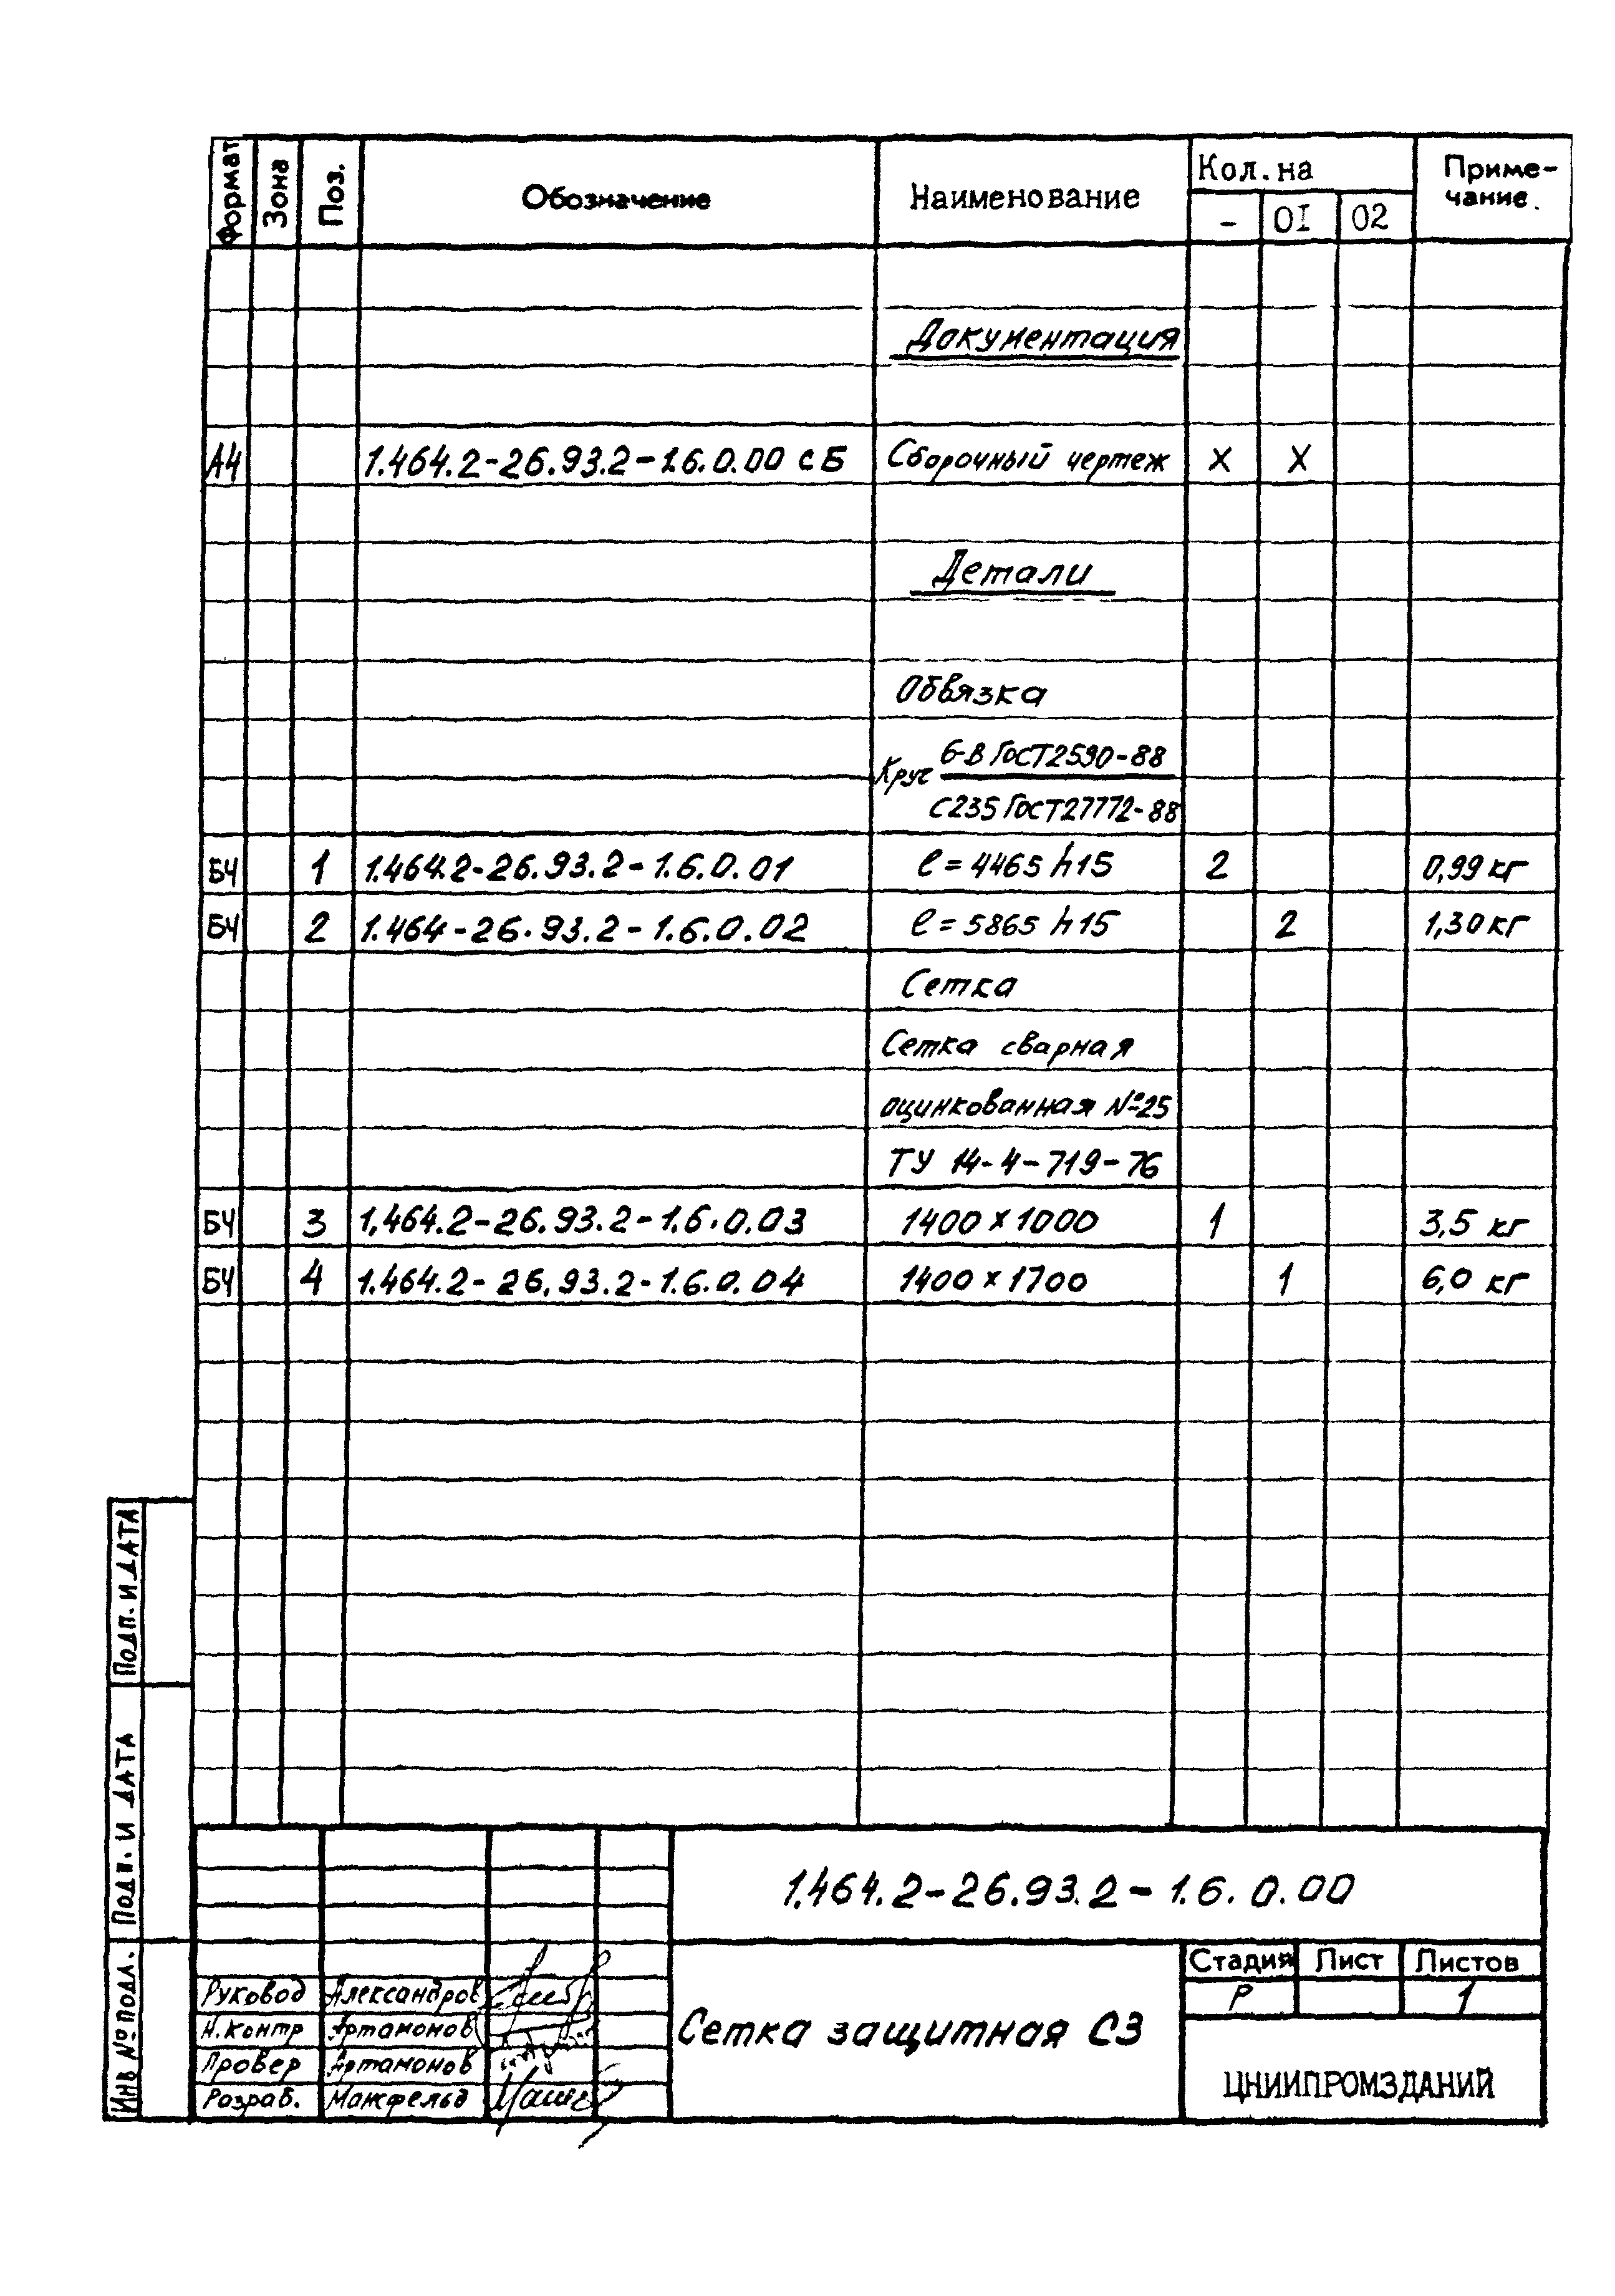 Формат Зона Поз. Обозначение Наименование Кол.на Приме-
чание.
- 0I 02
Документация
А4 1.464.2-26.93.2-1.6.0.00 СБ Сборочный чертеж х х
Детали
Обвязка
Круг 6-В ГОСТ2590-88
С235 ГОСТ27772-88
БЧ 1 1.464.2-26.93.2-1.6.0.01 ℓ=4465 h15 2 0,99 кг
БЧ 2 1.464-26.93.2-1.6.0.02 ℓ=5865 h15 2 1,30 кг
Сетка
Сетка сварная
оцинкованная №25
ТУ 14-4-719-76
БЧ 3 1.464.2-26.93.2-1.6.0.03 1400 х 1000 1 3,5 кг
БЧ 4 1.464.2-26.93.2-1.6.0.04 1400 х 1700 1 6,0 кг
Подп. и дата
Подп. и дата
Инв № подл.
1.464.2-26.93.2-1.6.0.00
Стадия Лист Листов
Р 1
Руковод Александров
Н.контр Артамонов
Провер Артамонов
Разраб. Манфельд
Сетка защитная С3
ЦНИИПРОМЗДАНИЙ